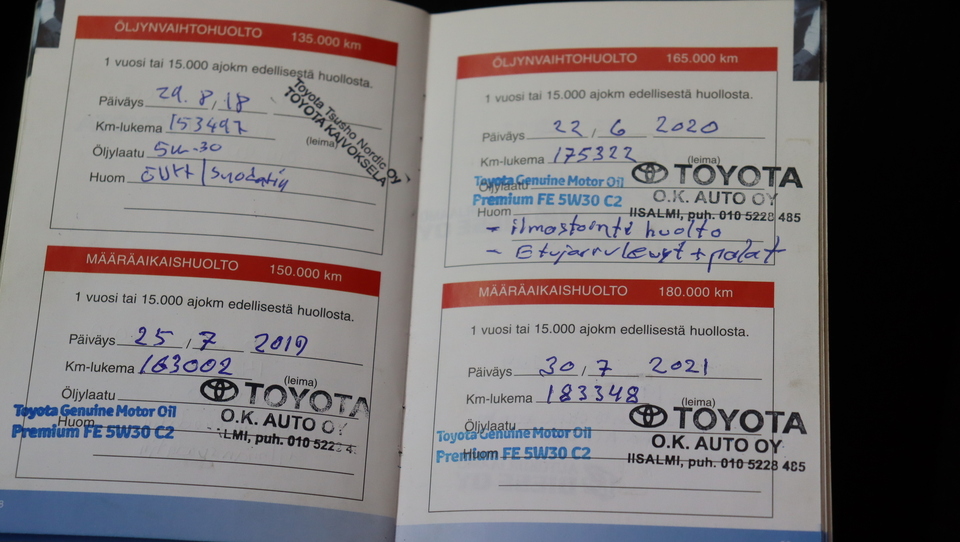 ÖLJYNVAIHTOHUOLTO 135.000 km
1 vuosi tai 15.000 ajokm edellisestä huollosta.
Päiväys 29.8,18
Km-lukema 153497
(leima)
Toyota Tsusho Nordic Oy
TOYOTA KAIVOKSELA
Öljylaatu 5W-30
Huom Öljyt/suodatin
MÄÄRÄAIKAISHUOLTO 150.000 km
1 vuosi tai 15.000 ajokm edellisestä huollosta.
Päiväys 25/7 2019
Km-lukema 163002
(leima)
Öljylaatu
TOYOTA
Toyota Genuine Motor Oil
O.K. AUTO OY
Huom
Premium FE 5W30 C2
LMI, puh. 010 522 4
ÖLJYNVAIHTOHUOLTO 165.000 km
1 vuosi tai 15.000 ajokm edellisestä huollosta.
Päiväys 22/6 2020
Km-lukema 175322
(leima)
TOYOTA
Toyota Genuine Motor Oil
Öljylaatu
Premium FE 5W30 C2
O.K. AUTO OY
Huom
IISALMI, puh. 010 5228 485
- ilmastointi huolto
- Etujarrulevyt + palat
MÄÄRÄAIKAISHUOLTO 180.000 km
1 vuosi tai 15.000 ajokm edellisestä huollosta.
Päiväys 30/7 2021
Km-lukema 183348
(leima)
Öljylaatu
TOYOTA
Toyota Genuine Motor Oil
O.K. AUTO OY
Huom
Premium FE 5W30 C2
IISALMI, puh. 010 5228 485
8